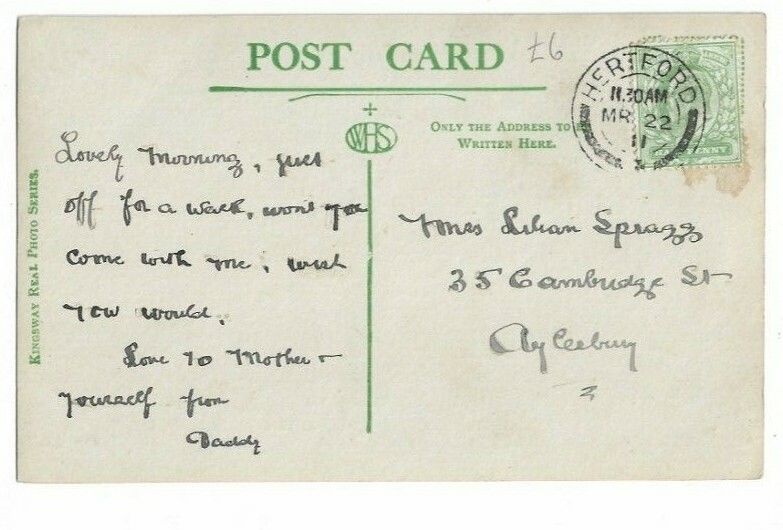 POST CARD
£6
HERTFORD
11.30AM
MR 22
11
PENNY
WHS
ONLY THE ADDRESS TO
WRITTEN HERE.
KINGSWAY REAL PHOTO SERIES.
Lovely morning, just
off for a walk, wont you
come with me, wish
you would.
Love to Mother &
yourself from
Daddy
Miss Lilian Spragg
35 Cambridge St
Aylesbury